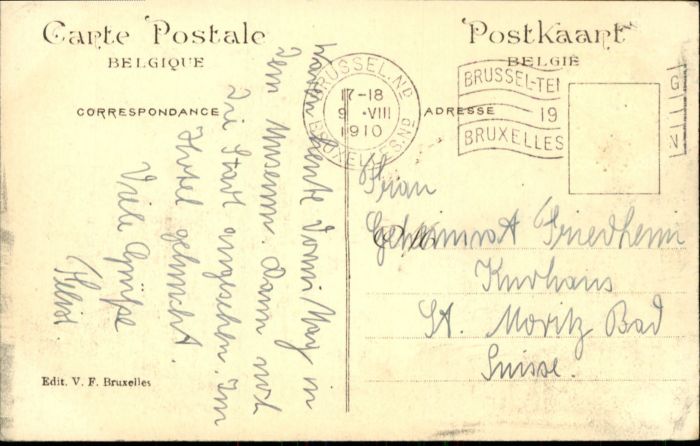 Carte Postale
BELGIQUE
Postkaart
BELGIË
CORRESPONDANCE
ADRESSE
BRUSSEL.Nd
17-18
9 .VIII
1910
BRUXELLES.Nd
BRUSSEL-TEN
19
BRUXELLES
G
N
Waren heute Vormittag in
dem Museum. Dann noch
die Stadt angesehen. Im
Hotel geluncht.
Viele Grüße
Frau
Geheimrat Friedheim
Kurhaus
St. Moritz Bad
Suisse.
Edit. V. F. Bruxelles